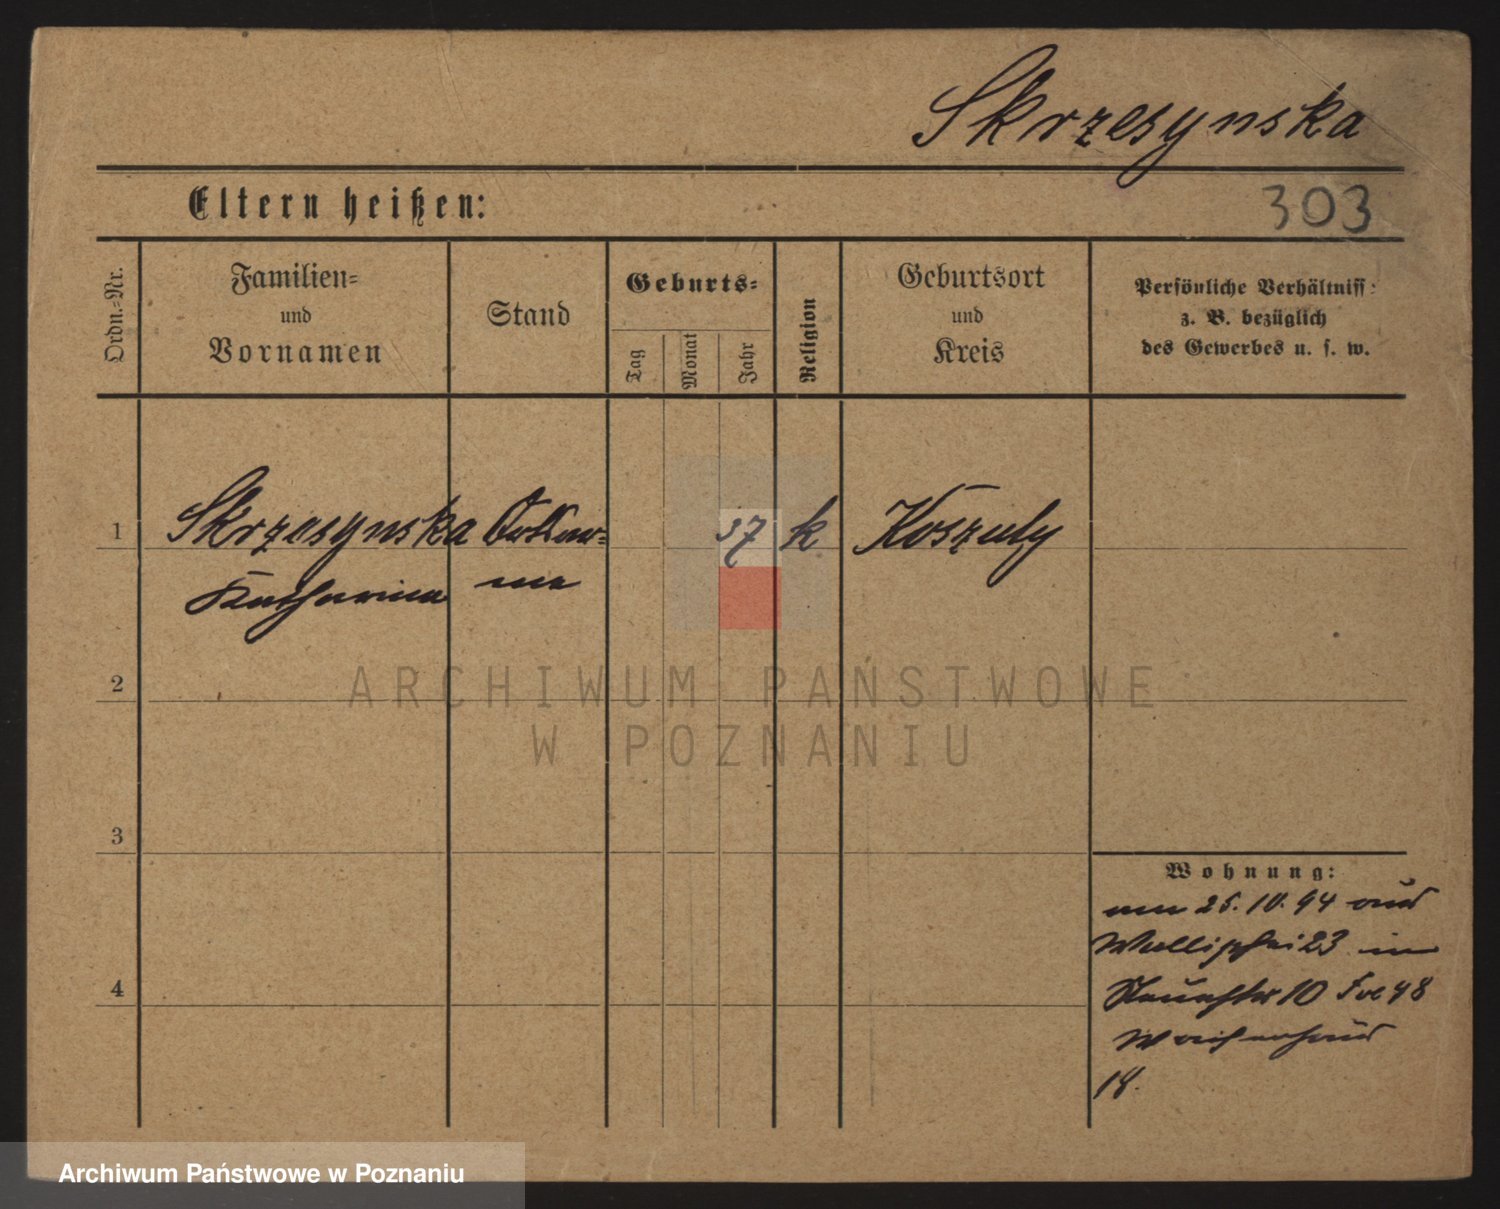 Skrzesynska
Eltern heißen:
303
Ordn.-Nr.
Familien-
und
Vornamen
Stand
Geburts-
Tag
Monat
Jahr
Religion
Geburtsort
und
Kreis
Persönliche Verhältniss-
z. B. bezüglich
des Gewerbes u. s. w.
1 Skrzesynska 37 k Koszuty
Katharina
2
ARCHIWUM PAŃSTWOWE
W POZNANIU
3
4
Wohnung:
am 25. 10. 94 aus
Wallischei 23 in
10 48
Waisenhaus
18.
Archiwum Państwowe w Poznaniu